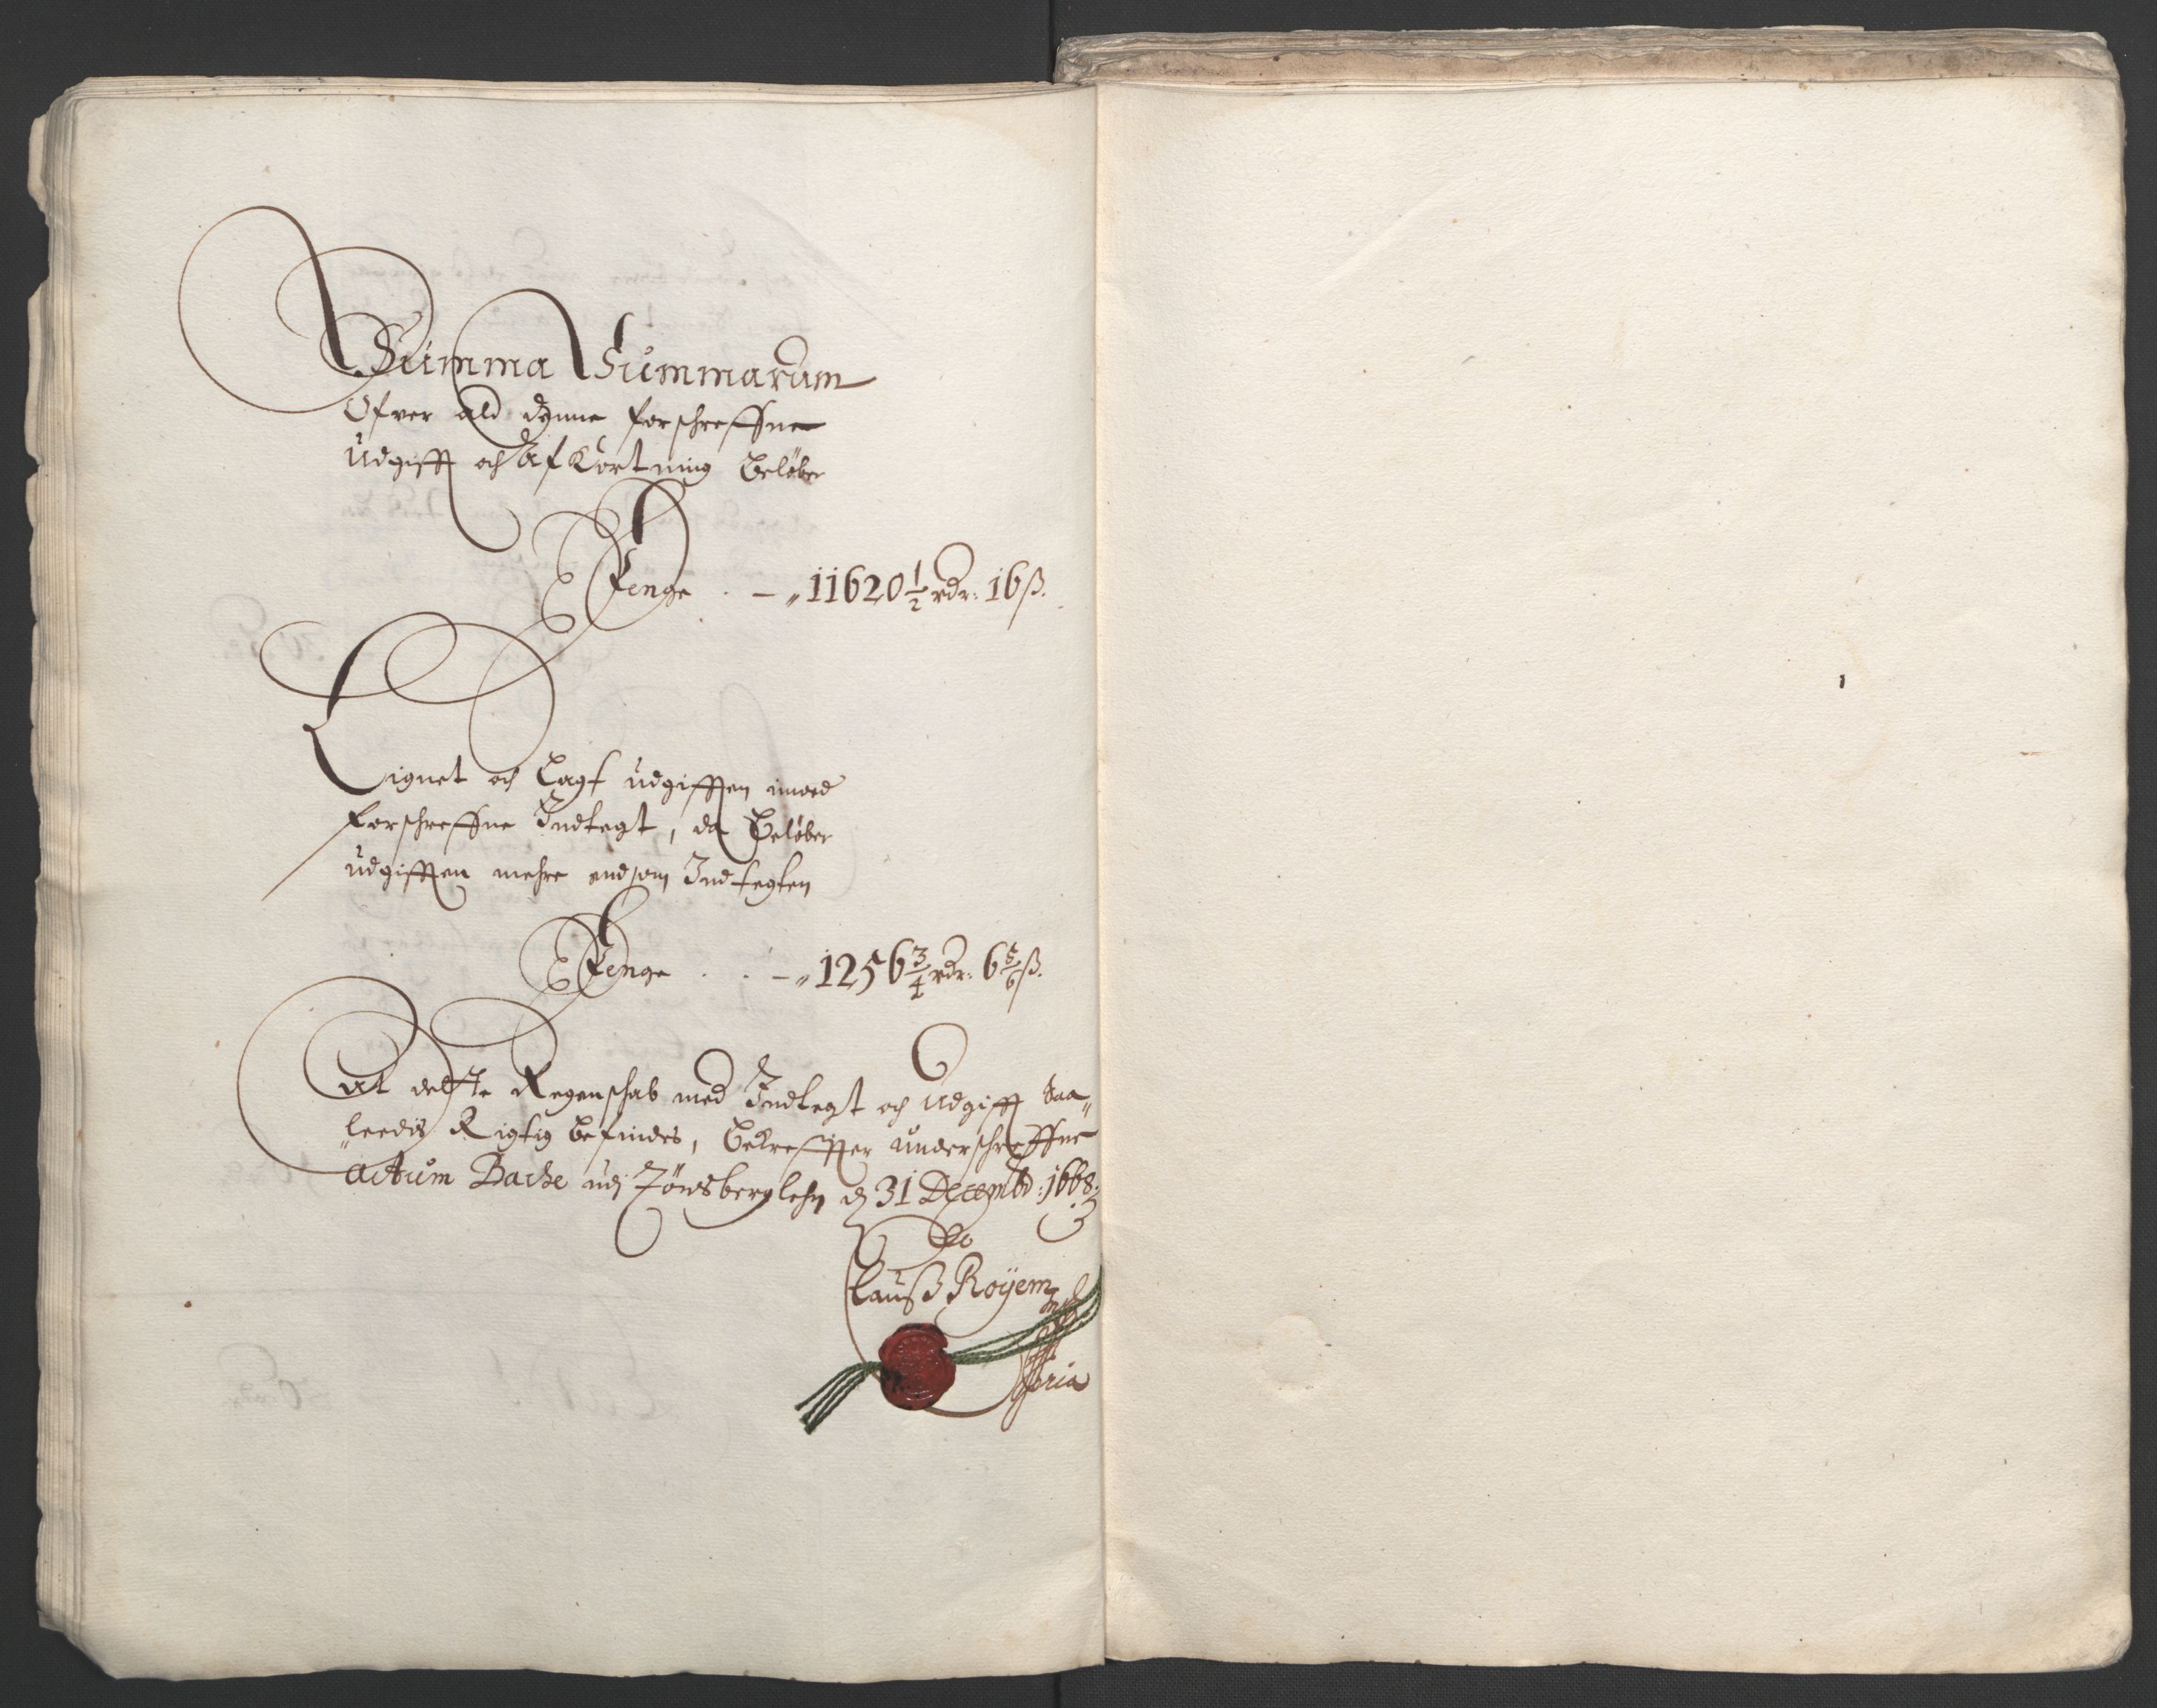 Summa Summarum
Ofver ald denne forschreffne
Udgifft och Afkortning beløber
Penge . — „ 11620 1/2 rdr: 16 ß.
Lignet och Lagt udgifften imod
forschreffne Indtegt, da beløber
udgifften mehre end som Indtegten
Penge . . — „ 1256 3/4 rdr: 6 5/6 ß.
At dette Regenschab med Indtegt och Udgifft saa„
„leedis Rigtig befindes, bekreffter underschreffne
Actum Backe udj Tönsberglehn d 31 Decembr: 1668:
Clauß Röyem